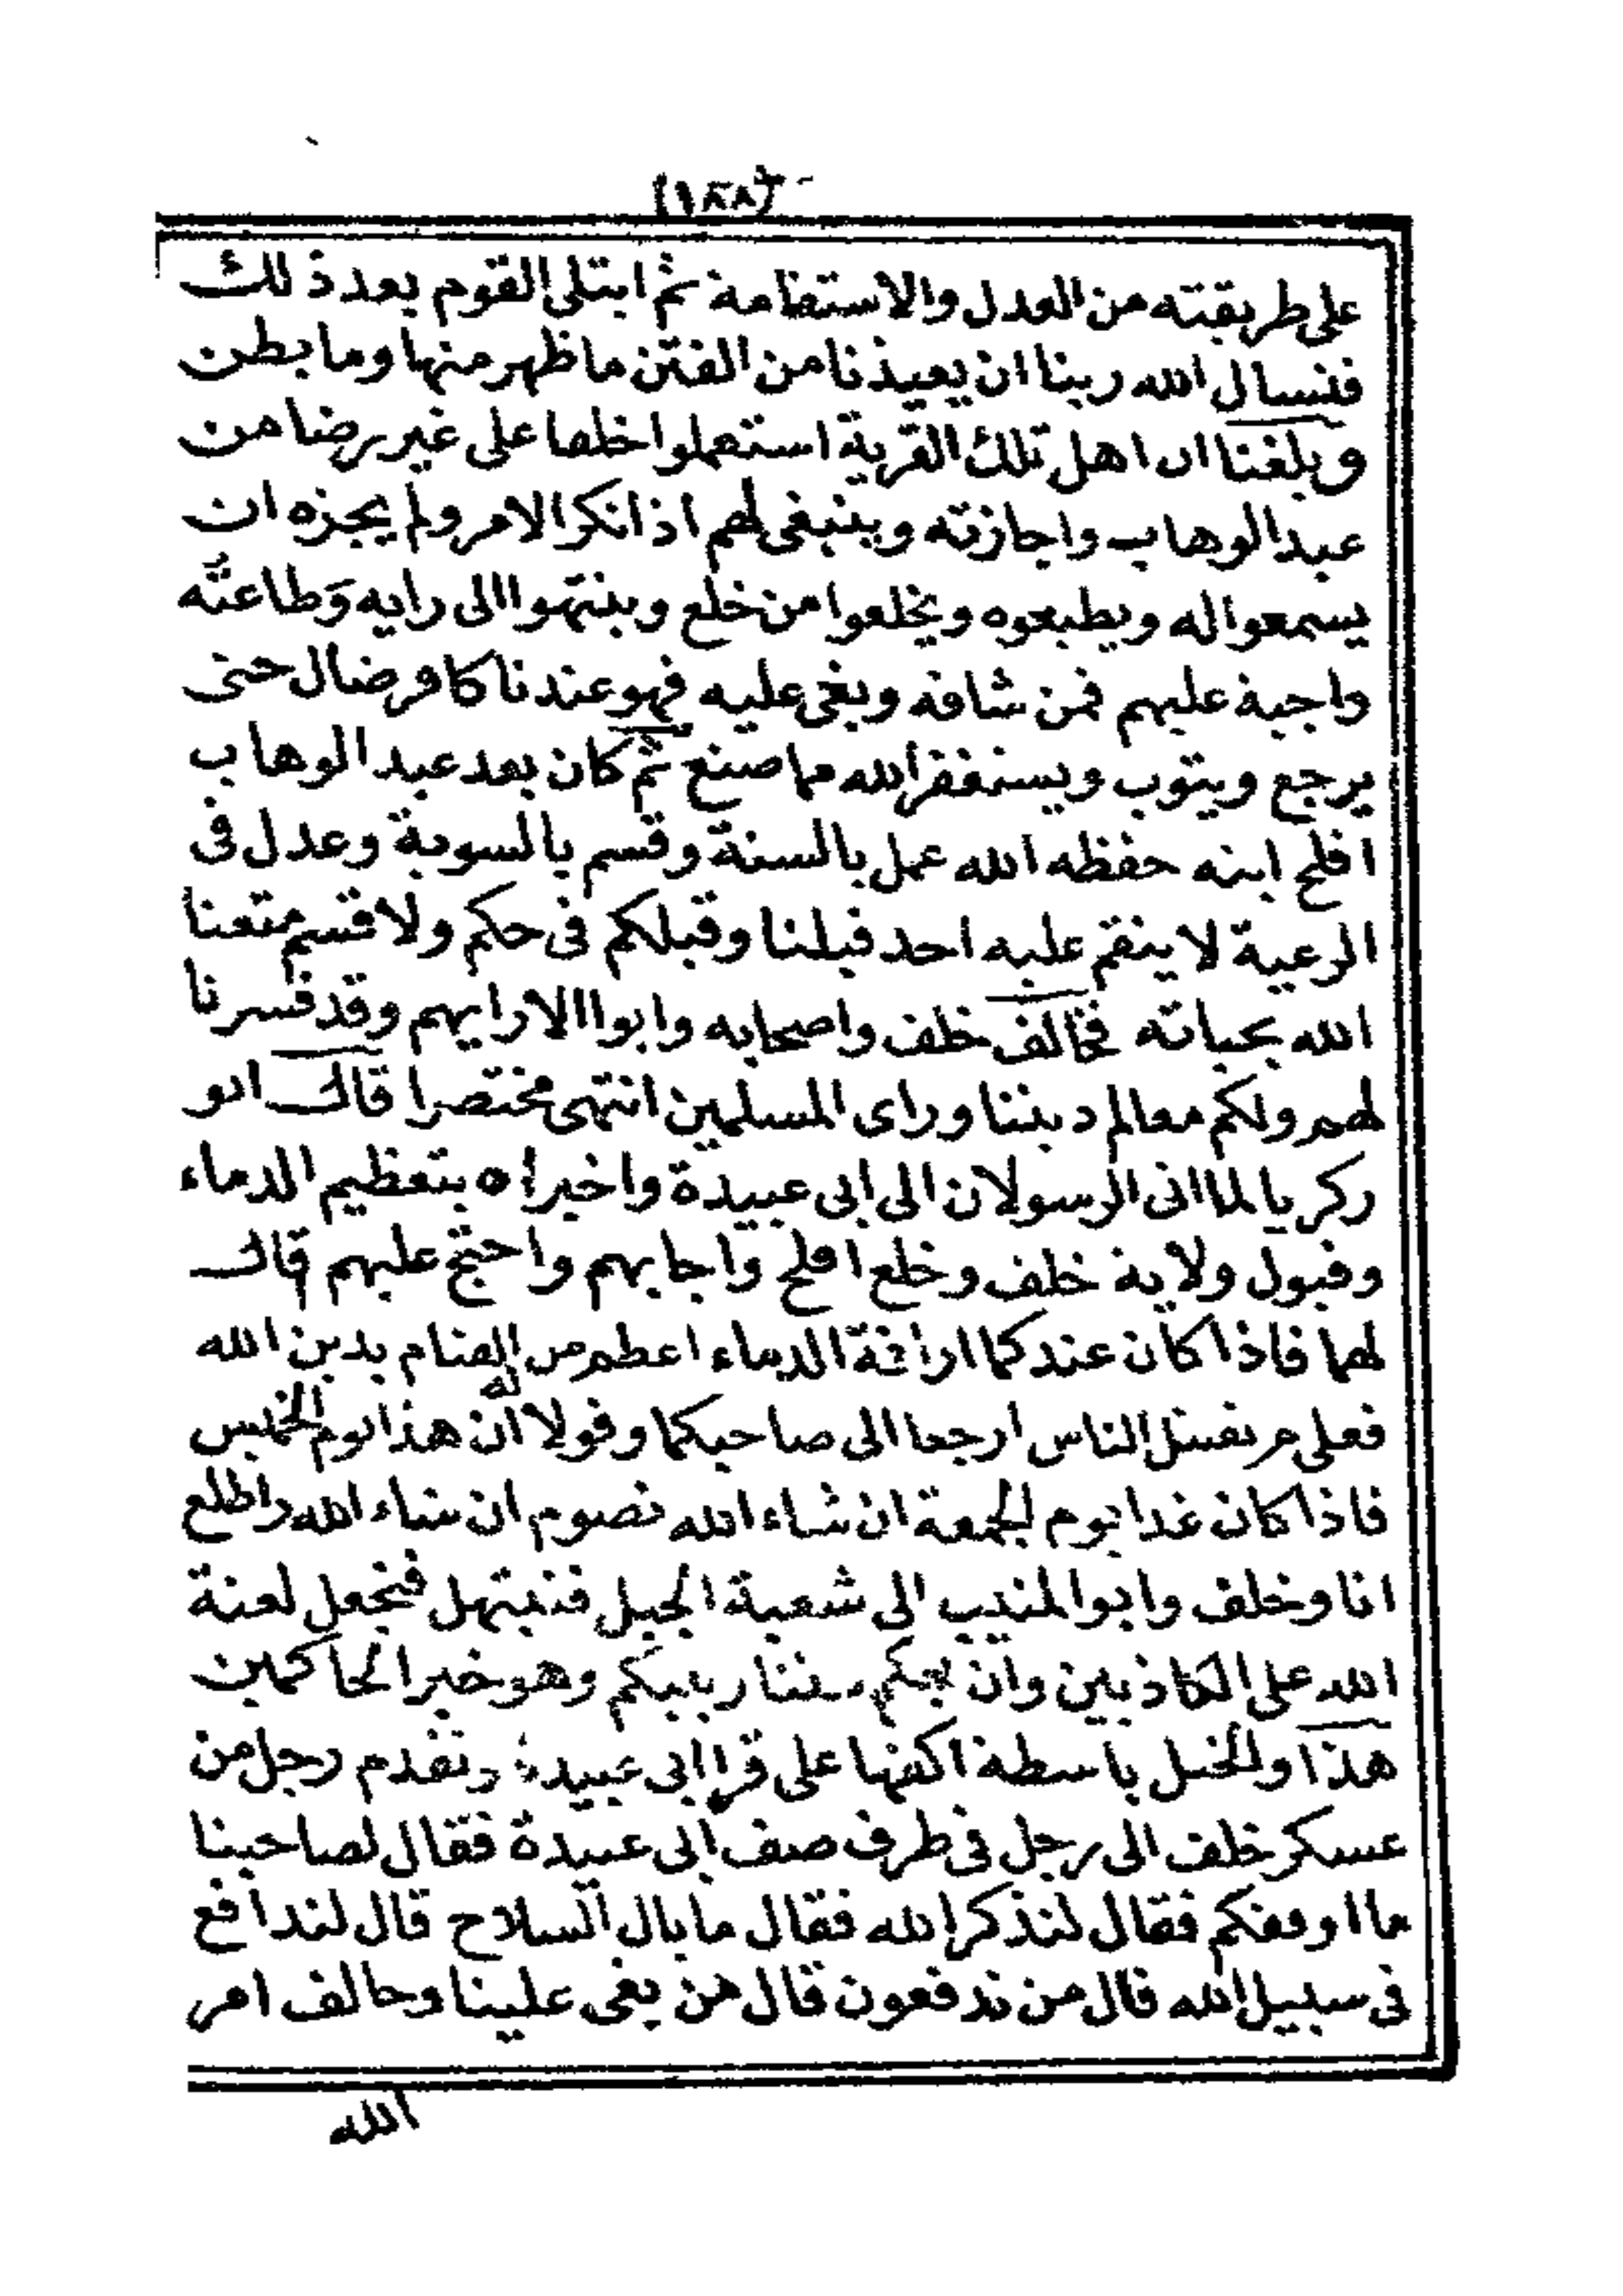 (١٨٨)
على طريقته من العدل والاستقامة ثم ابتلى القوم بعد ذلك
فنسال الله ربنا ان يعيذنا من الفتن ما ظهر منها وما بطن
وبلغنا ان اهل تلك القرية استعملوا خلفا على غير رضا من
عبد الوهاب واجازته وينبغى لهم اذ انكر الامر ولم يجزه ان
يسمعوا له ويطيعوه ويخلعوا من خلع وينتهوا الى رايه وَطاعتُه
واجبة عليهم فمن شاقه وبغى عليه فهو عندنا كافر ضال حتى
يرجع ويتوب ويستغفر الله مما صنع ثم كان بعد عبد الوهاب
افلح ابنه حفظه الله عمل بالسنة وقسم بالسوية وعدل فى
الرعية لا ينقم عليه احد قبلنا وقبلكم فى حكم ولا قسم متعنا
الله بحياته فخالف خلف واصحابه وابوا الا رايهم وقد فسرنا
لهم ولكم معالم ديننا وراى المسلمين انتهى مختصرا قال ابو
زكريا لما اتى الرسولان الى ابى عبيدة واخبراه بتعظيم الدماء
وقبول ولاية خلف وخلع افلح واجابهم واحتج عليهم قال
لهما فاذا كان عندكما اراقة الدماء اعظم من القيام بدين الله
فعلى م يقتتل الناس ارجعا الى صاحبكما وقولا له ان هذا يوم الخميس
فاذا كان غدا يوم الجمعة ان شاء الله نصوم ان شاء الله واطلع
انا وخلف وابو المنيب الى شعبة الجبل فنبتهل فنجعل لعنة
الله على الكاذبين وان يحكم بيننا ربنا وبينكم وهو خير الحاكمين
هذا والخيل باسطة اكفها على قرا ابى عبيدة وتقدم رجل من
عسكر خلف الى رجل فى طرف صف ابى عبيدة فقال لصاحبنا
ما اوقفكم فقال لنذكر الله فقال ما بال السلاح قال لندافع
فى سبيل الله قال من تدفعون قال من بغى علينا وخالف امر
الله